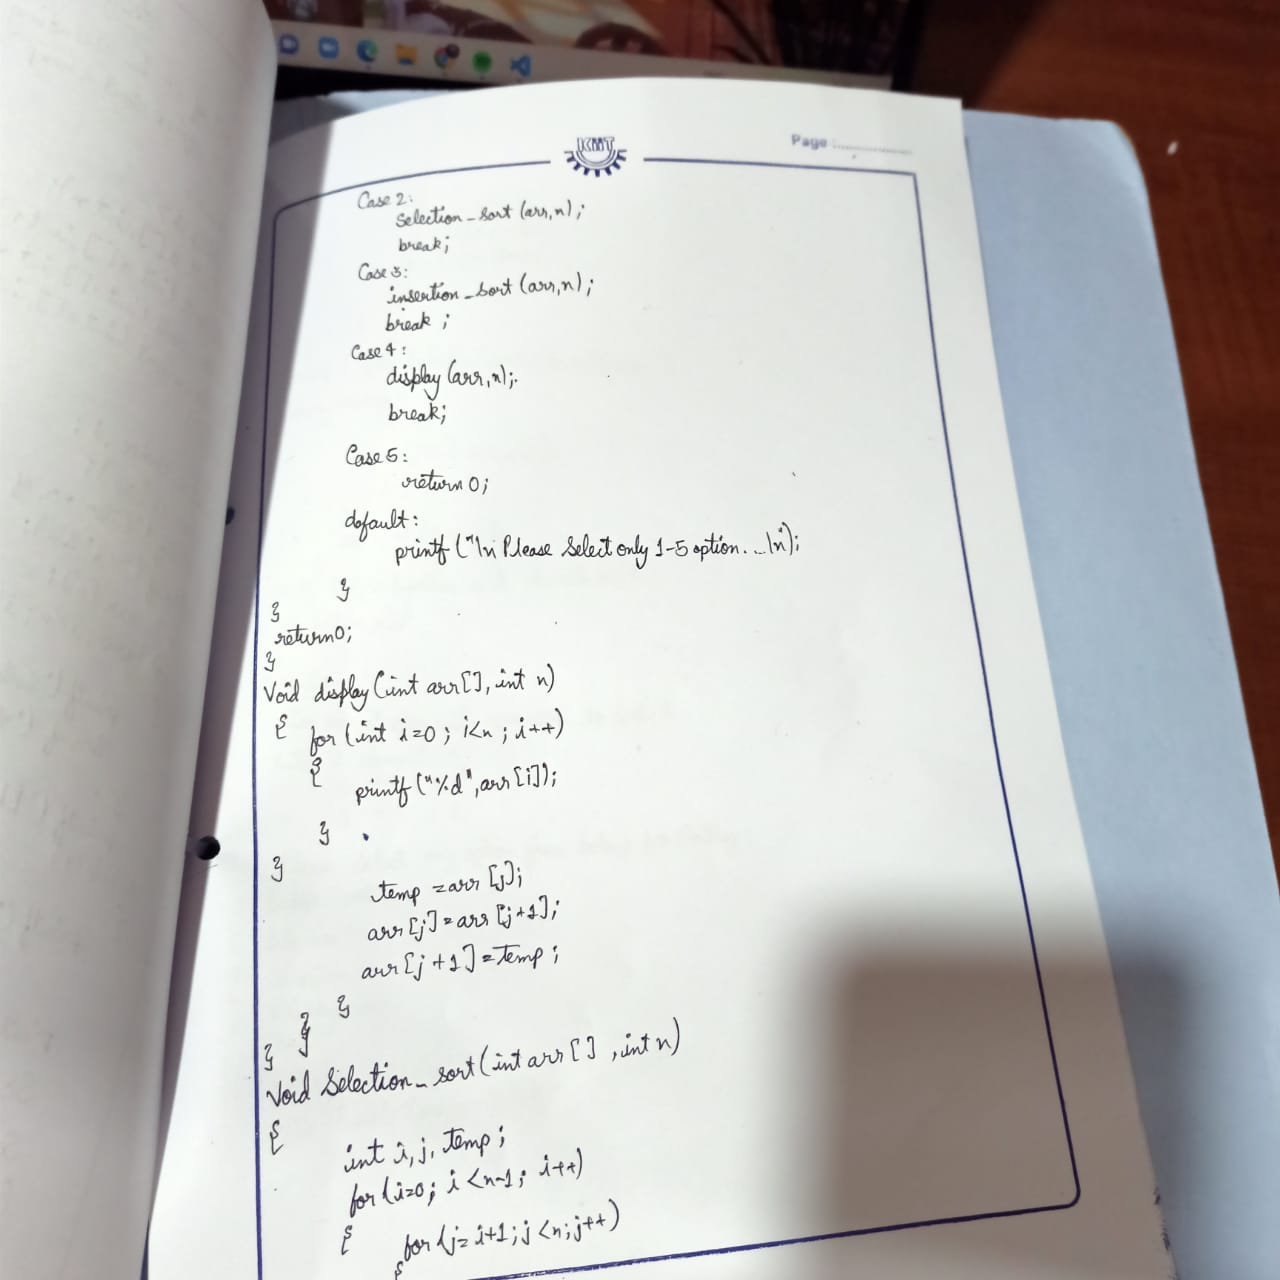 KIIT
Page :
Case 2:
Selection_sort (arr,n);
break;
Case 3:
insertion_sort (arr,n);
break ;
Case 4:
display (arr,n);
break;
Case 5:
return 0;
default:
printf ("\n Please Select only 1-5 option...\n");
}
}
return 0;
}
Void display (int arr[], int n)
{ for (int i=0 ; i<n ; i++)
{
printf ("%d", arr[i]);
}
}
temp = arr [j];
arr [j] = arr [j+1];
arr [j +1] = temp ;
}
}
}
Void Selection_sort (int arr [ ] , int n)
{
int i, j, temp ;
for (i=0; i <n-1; i++)
{ for (j= i+1; j <n; j++)
{